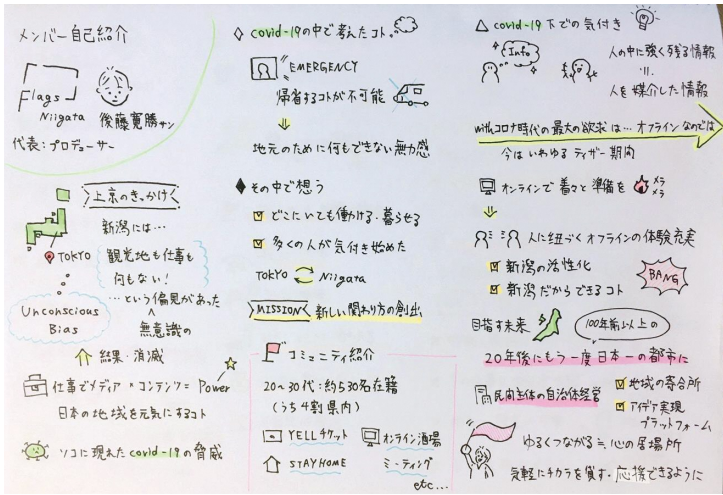 メンバー自己紹介
Flags
Niigata
後藤寛勝サン
代表:プロデューサー
上京のきっかけ
新潟には…
TOKYO
観光地も仕事も
何もない!
…という偏見があった
Unconscious
Bias
無意識の
結果・消滅
仕事でメディア×コンテンツ=Power
日本の地域を元気にするコト
ソコに現れたcovid-19の脅威
covid-19の中で考えたコト。
EMERGENCY
帰省するコトが不可能
地元のために何もできない無力感
その中で想う
どこにいても働ける・暮らせる
多くの人が気付き始めた
TOKYO Niigata
MISSION 新しい関わり方の創出
コミュニティ紹介
20~30代:約530名在籍
(うち4割県内)
YELLチケット
オンライン酒場
STAY HOME
ミーティング
etc...
covid-19下での気付き
Info
人の中に強く残る情報
人を媒介した情報
withコロナ時代の最大の欲求は…オフラインなのでは
今はいわゆるティザー期間
オンラインで着々と準備を
メラ
メラ
人に紐づくオフラインの体験充実
新潟の活性化
新潟だからできるコト
BANG
目指す未来
100年前以上の
20年後にもう一度日本一の都市に
民間主体の自治体経営
地域の寄合所
アイデア実現
プラットフォーム
ゆるくつながる≒心の居場所
気軽にチカラを貸す。応援できるように